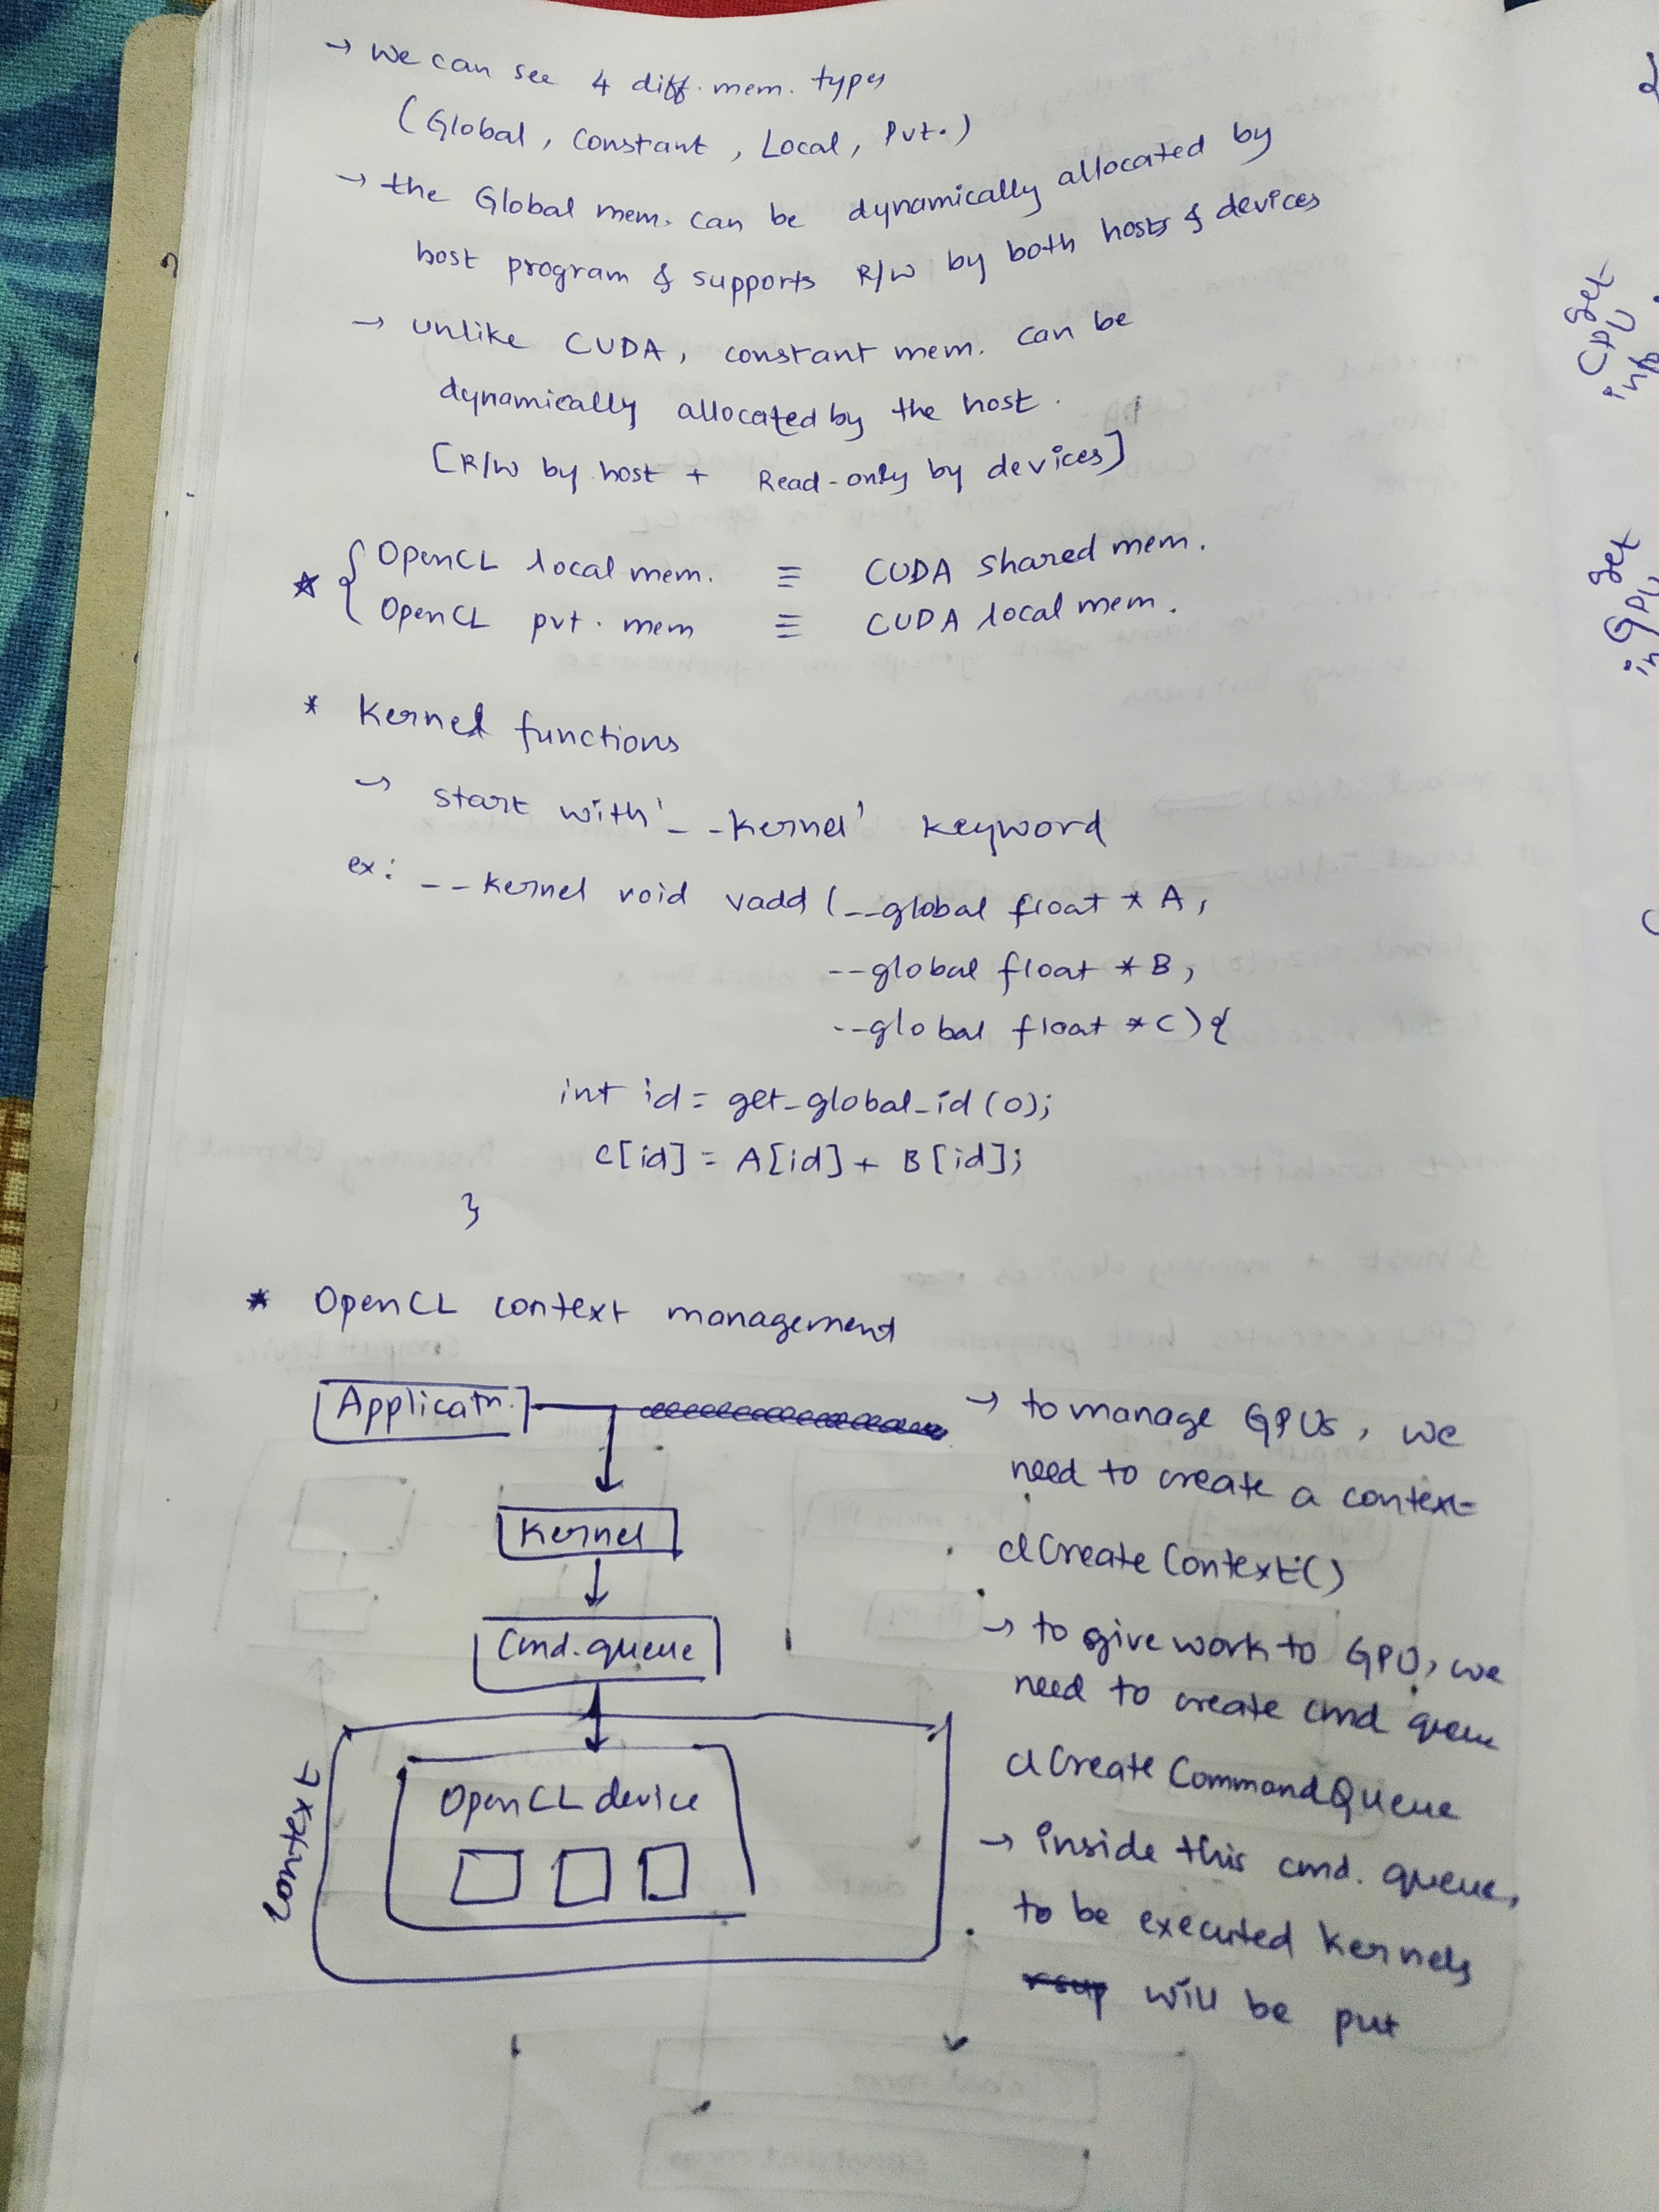 → We can see 4 diff. mem. types
(Global, Constant, Local, Pvt.)
→ the Global mem. can be dynamically allocated by
host program & supports R/W by both hosts & devices
→ unlike CUDA, constant mem. can be
dynamically allocated by the host.
[R/W by host + Read-only by devices]
☆ { OpenCL local mem. ≡ CUDA shared mem.
OpenCL pvt. mem ≡ CUDA local mem.
* Kernel functions
→ start with '__kernel' keyword
ex: __kernel void vadd (__global float * A,
__global float * B,
__global float * C) {
int id = get_global_id (0);
C[id] = A[id] + B[id];
}
* OpenCL context management
Applicatn.
Kernel
Cmd. queue
OpenCL device
Context
→ to manage GPUs, we
need to create a context
clCreateContext()
→ to give work to GPU, we
need to create cmd queue
clCreateCommandQueue
→ inside this cmd. queue,
to be executed kernels
will be put
get
CPU
get
GPU
in